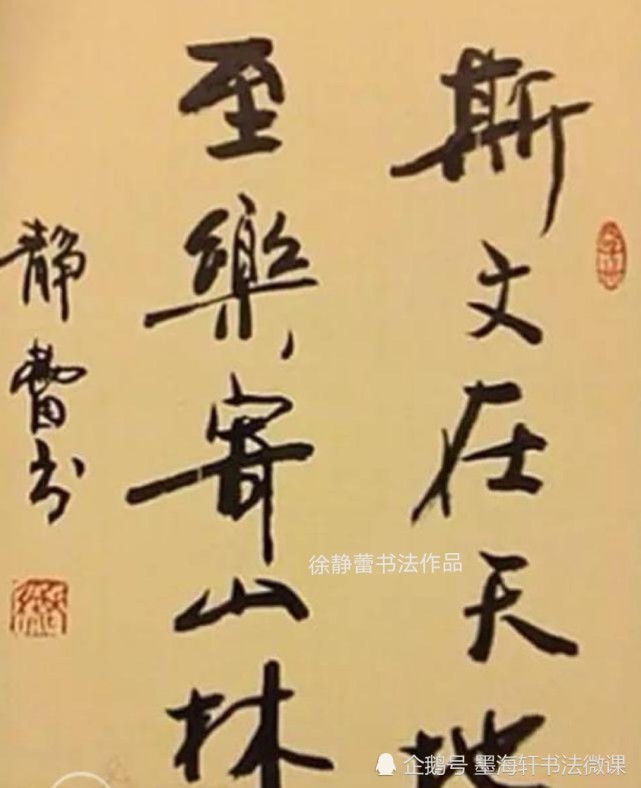 斯文在天地
至樂寄山林
静蕾书
徐静蕾书法作品
企鹅号 墨海轩书法微课